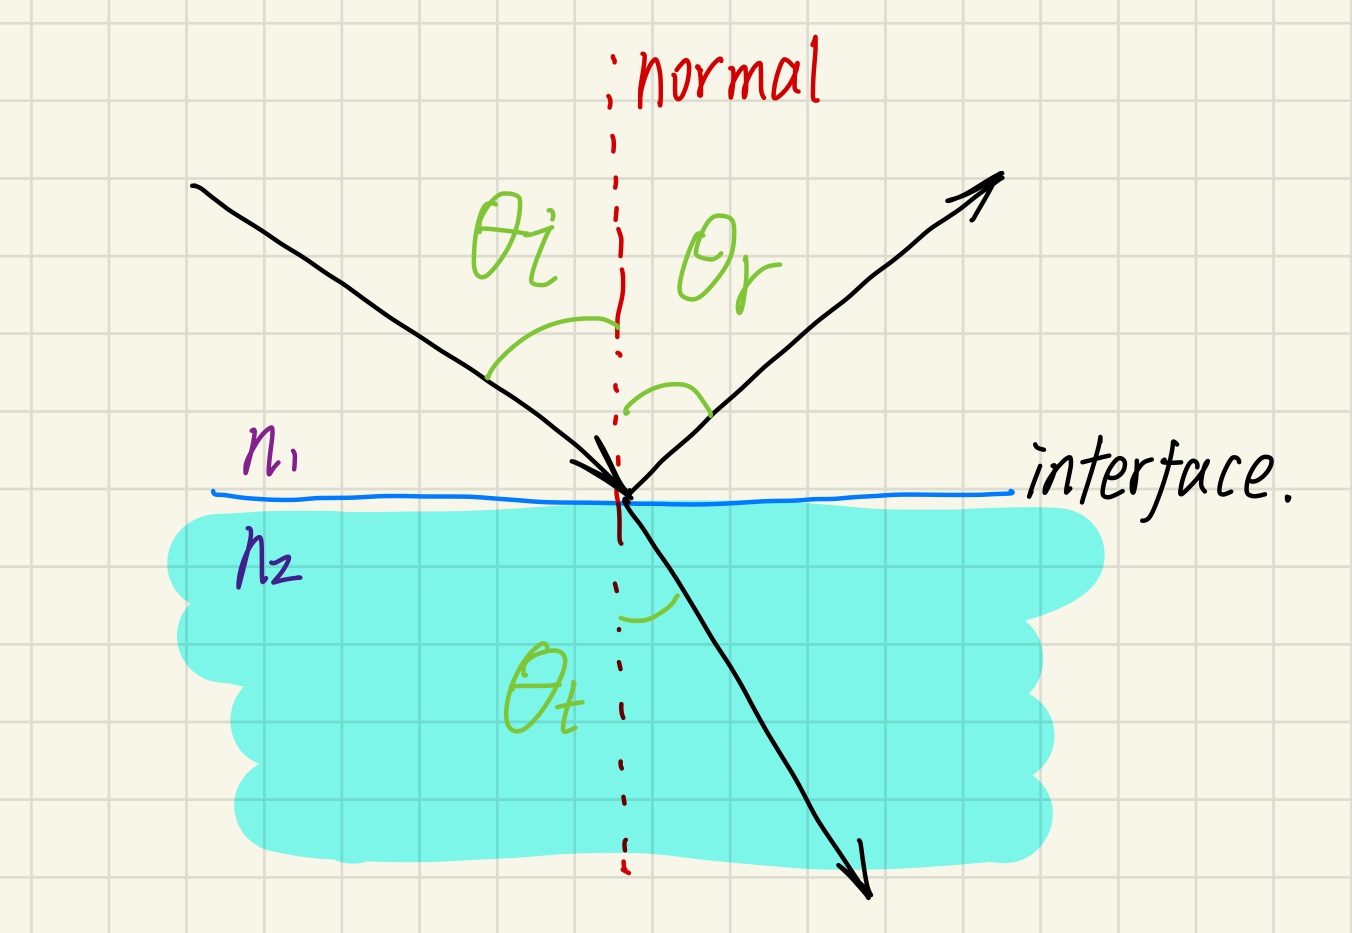 normal
θi
θr
n1
interface.
n2
θt